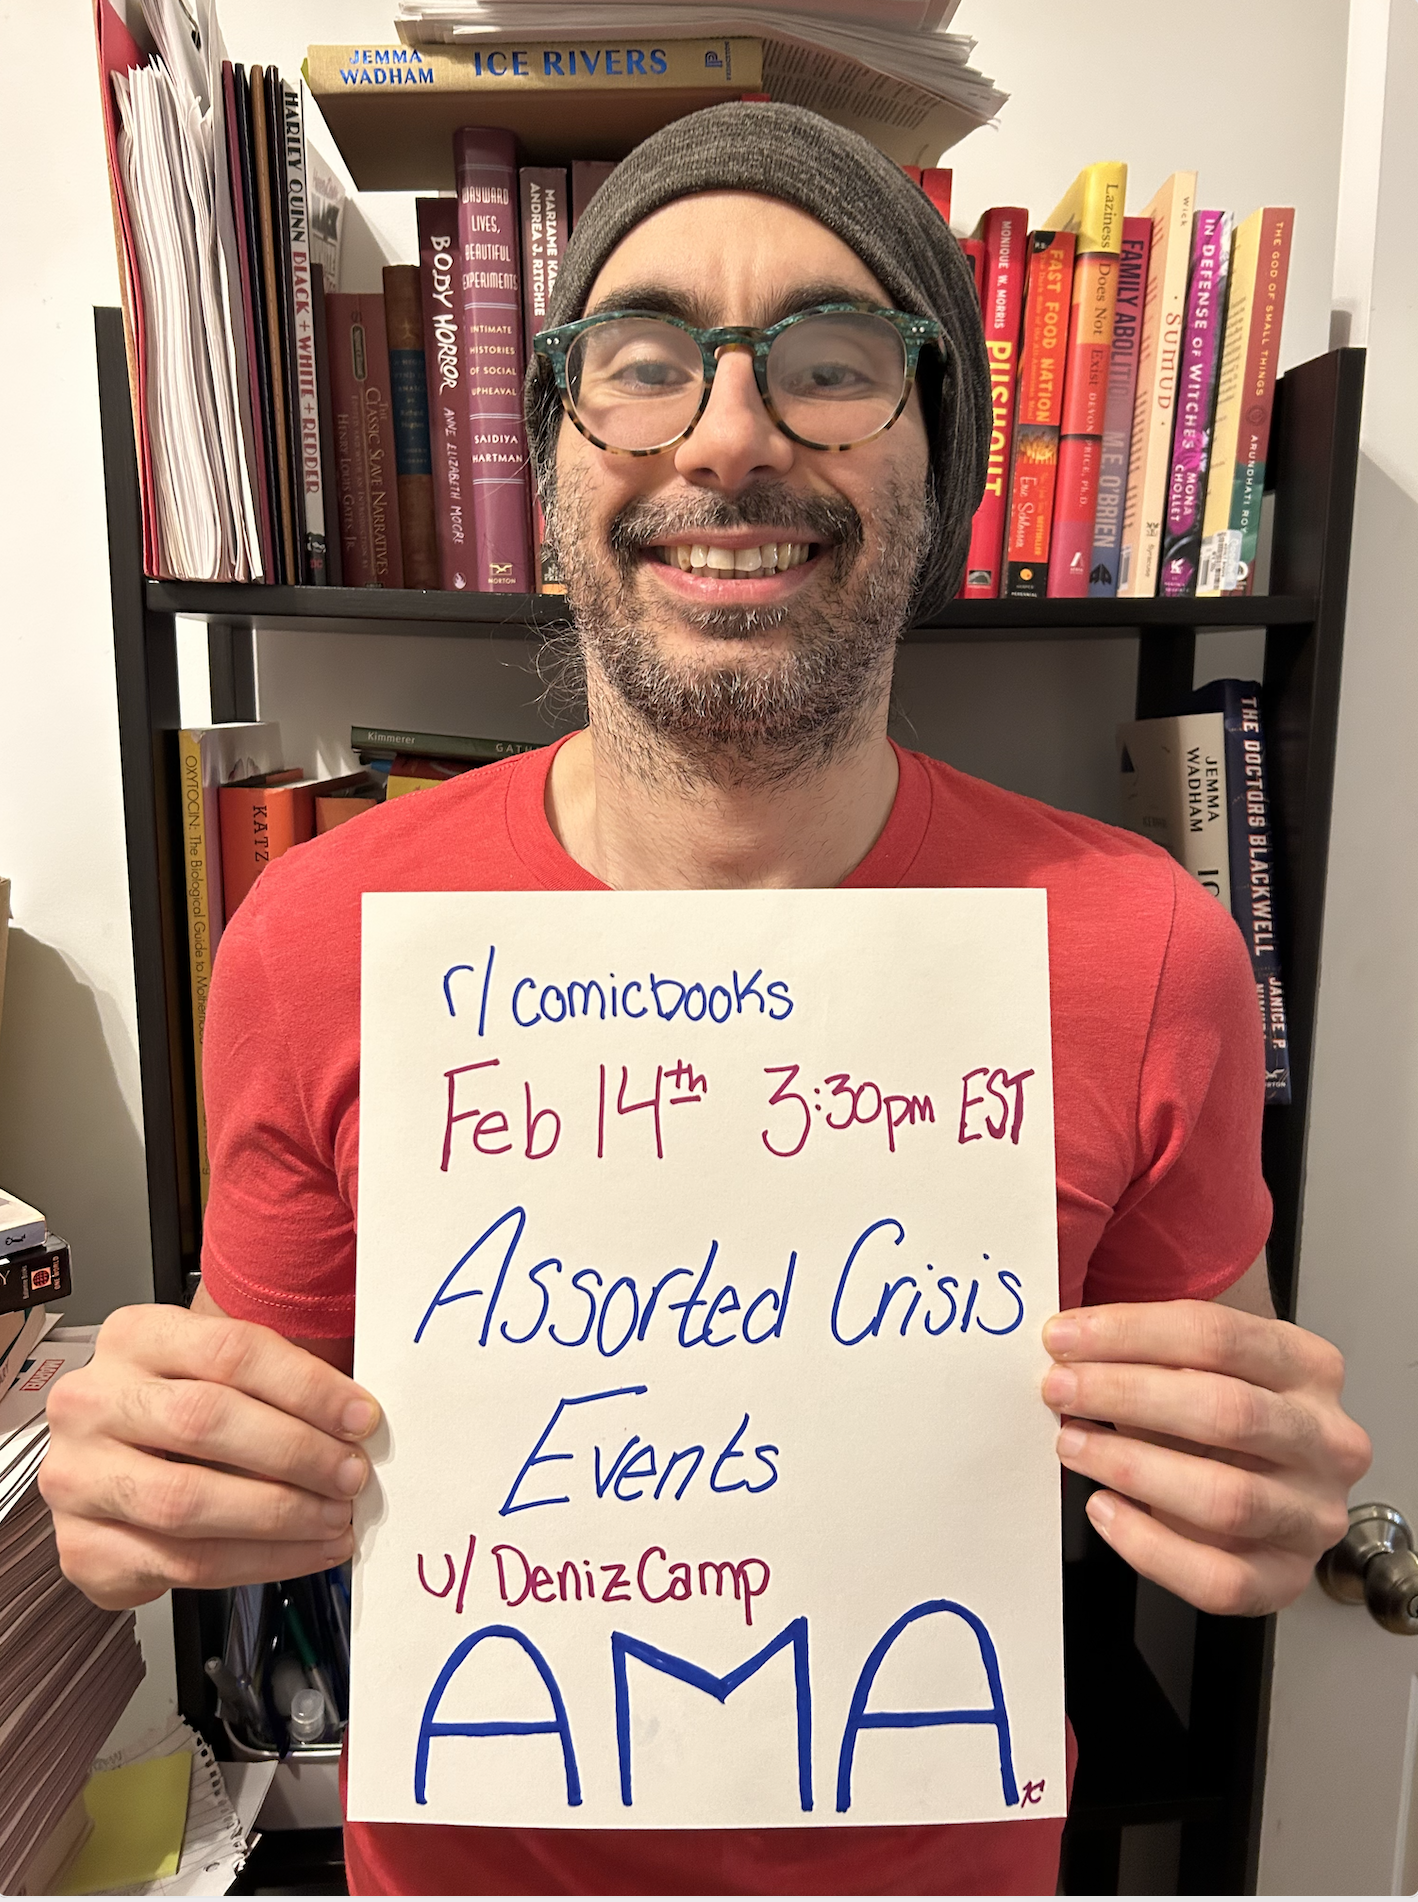 JEMMA
WADHAM
ICE RIVERS
HARLEY QUINN BLACK + WHITE + REDDER
THE CLASSIC SLAVE NARRATIVES
HENRY LOUIS GATES, JR.
BODY HORROR ANNE ELIZABETH MOORE
WAYWARD
LIVES,
BEAUTIFUL
EXPERIMENTS
INTIMATE
HISTORIES
OF SOCIAL
UPHEAVAL
SAIDIYA
HARTMAN
NORTON
MARIAME
ANDREA J. RITCHIE
MONIQUE W. MORRIS PUSHOUT
FAST FOOD NATION
Eric Schlosser
Laziness Does Not Exist DEVON PRICE, PH.D.
FAMILY M.E. O'BRIEN
Wick
SUMUD
IN DEFENSE OF WITCHES MONA CHOLLET
THE GOD OF SMALL THINGS ARUNDHATI ROY
Kimmerer
OXYTOCIN: The Biological Guide to Motherhood
KATZ
JEMMA
WADHAM
THE DOCTORS BLACKWELL JANICE P.
r/comicbooks
Feb 14th 3:30pm EST
Assorted Crisis
Events
u/DenizCamp
AMA